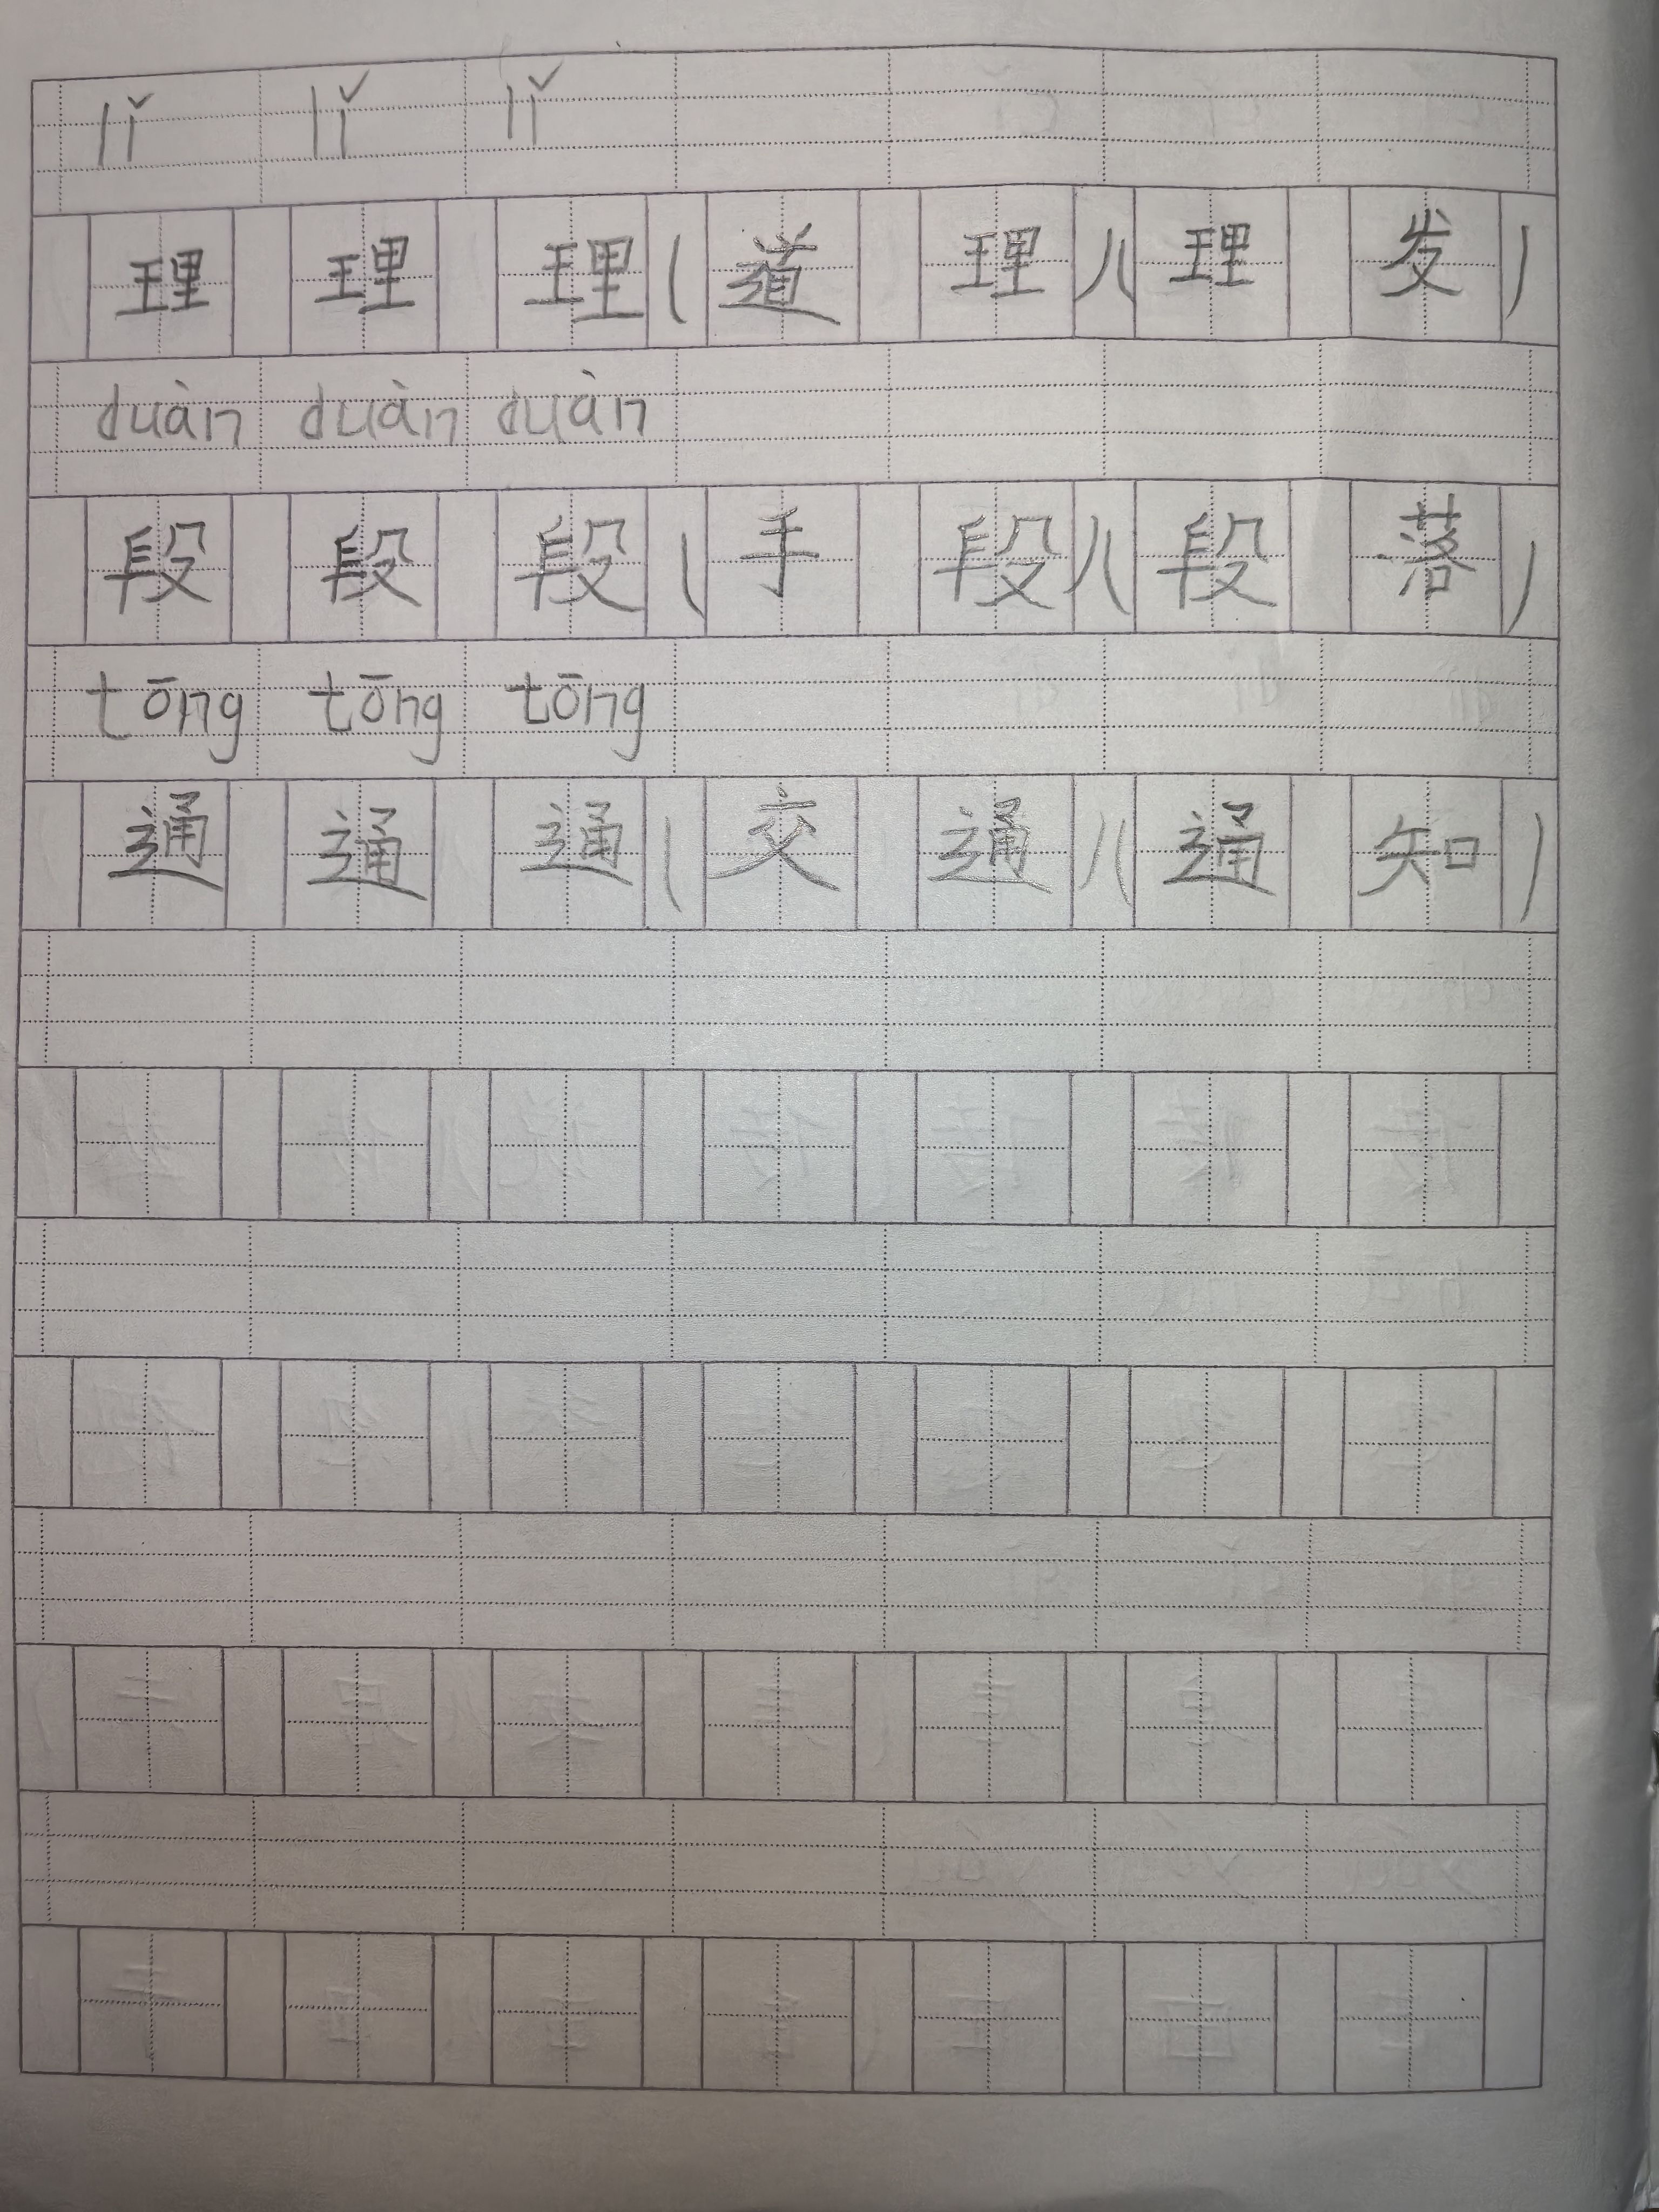 lǐ lǐ lǐ
理 理 理(道 理)(理 发)
duàn duàn duàn
段 段 段(手 段)(段 落)
tōng tōng tōng
通 通 通(交 通)(通 知)